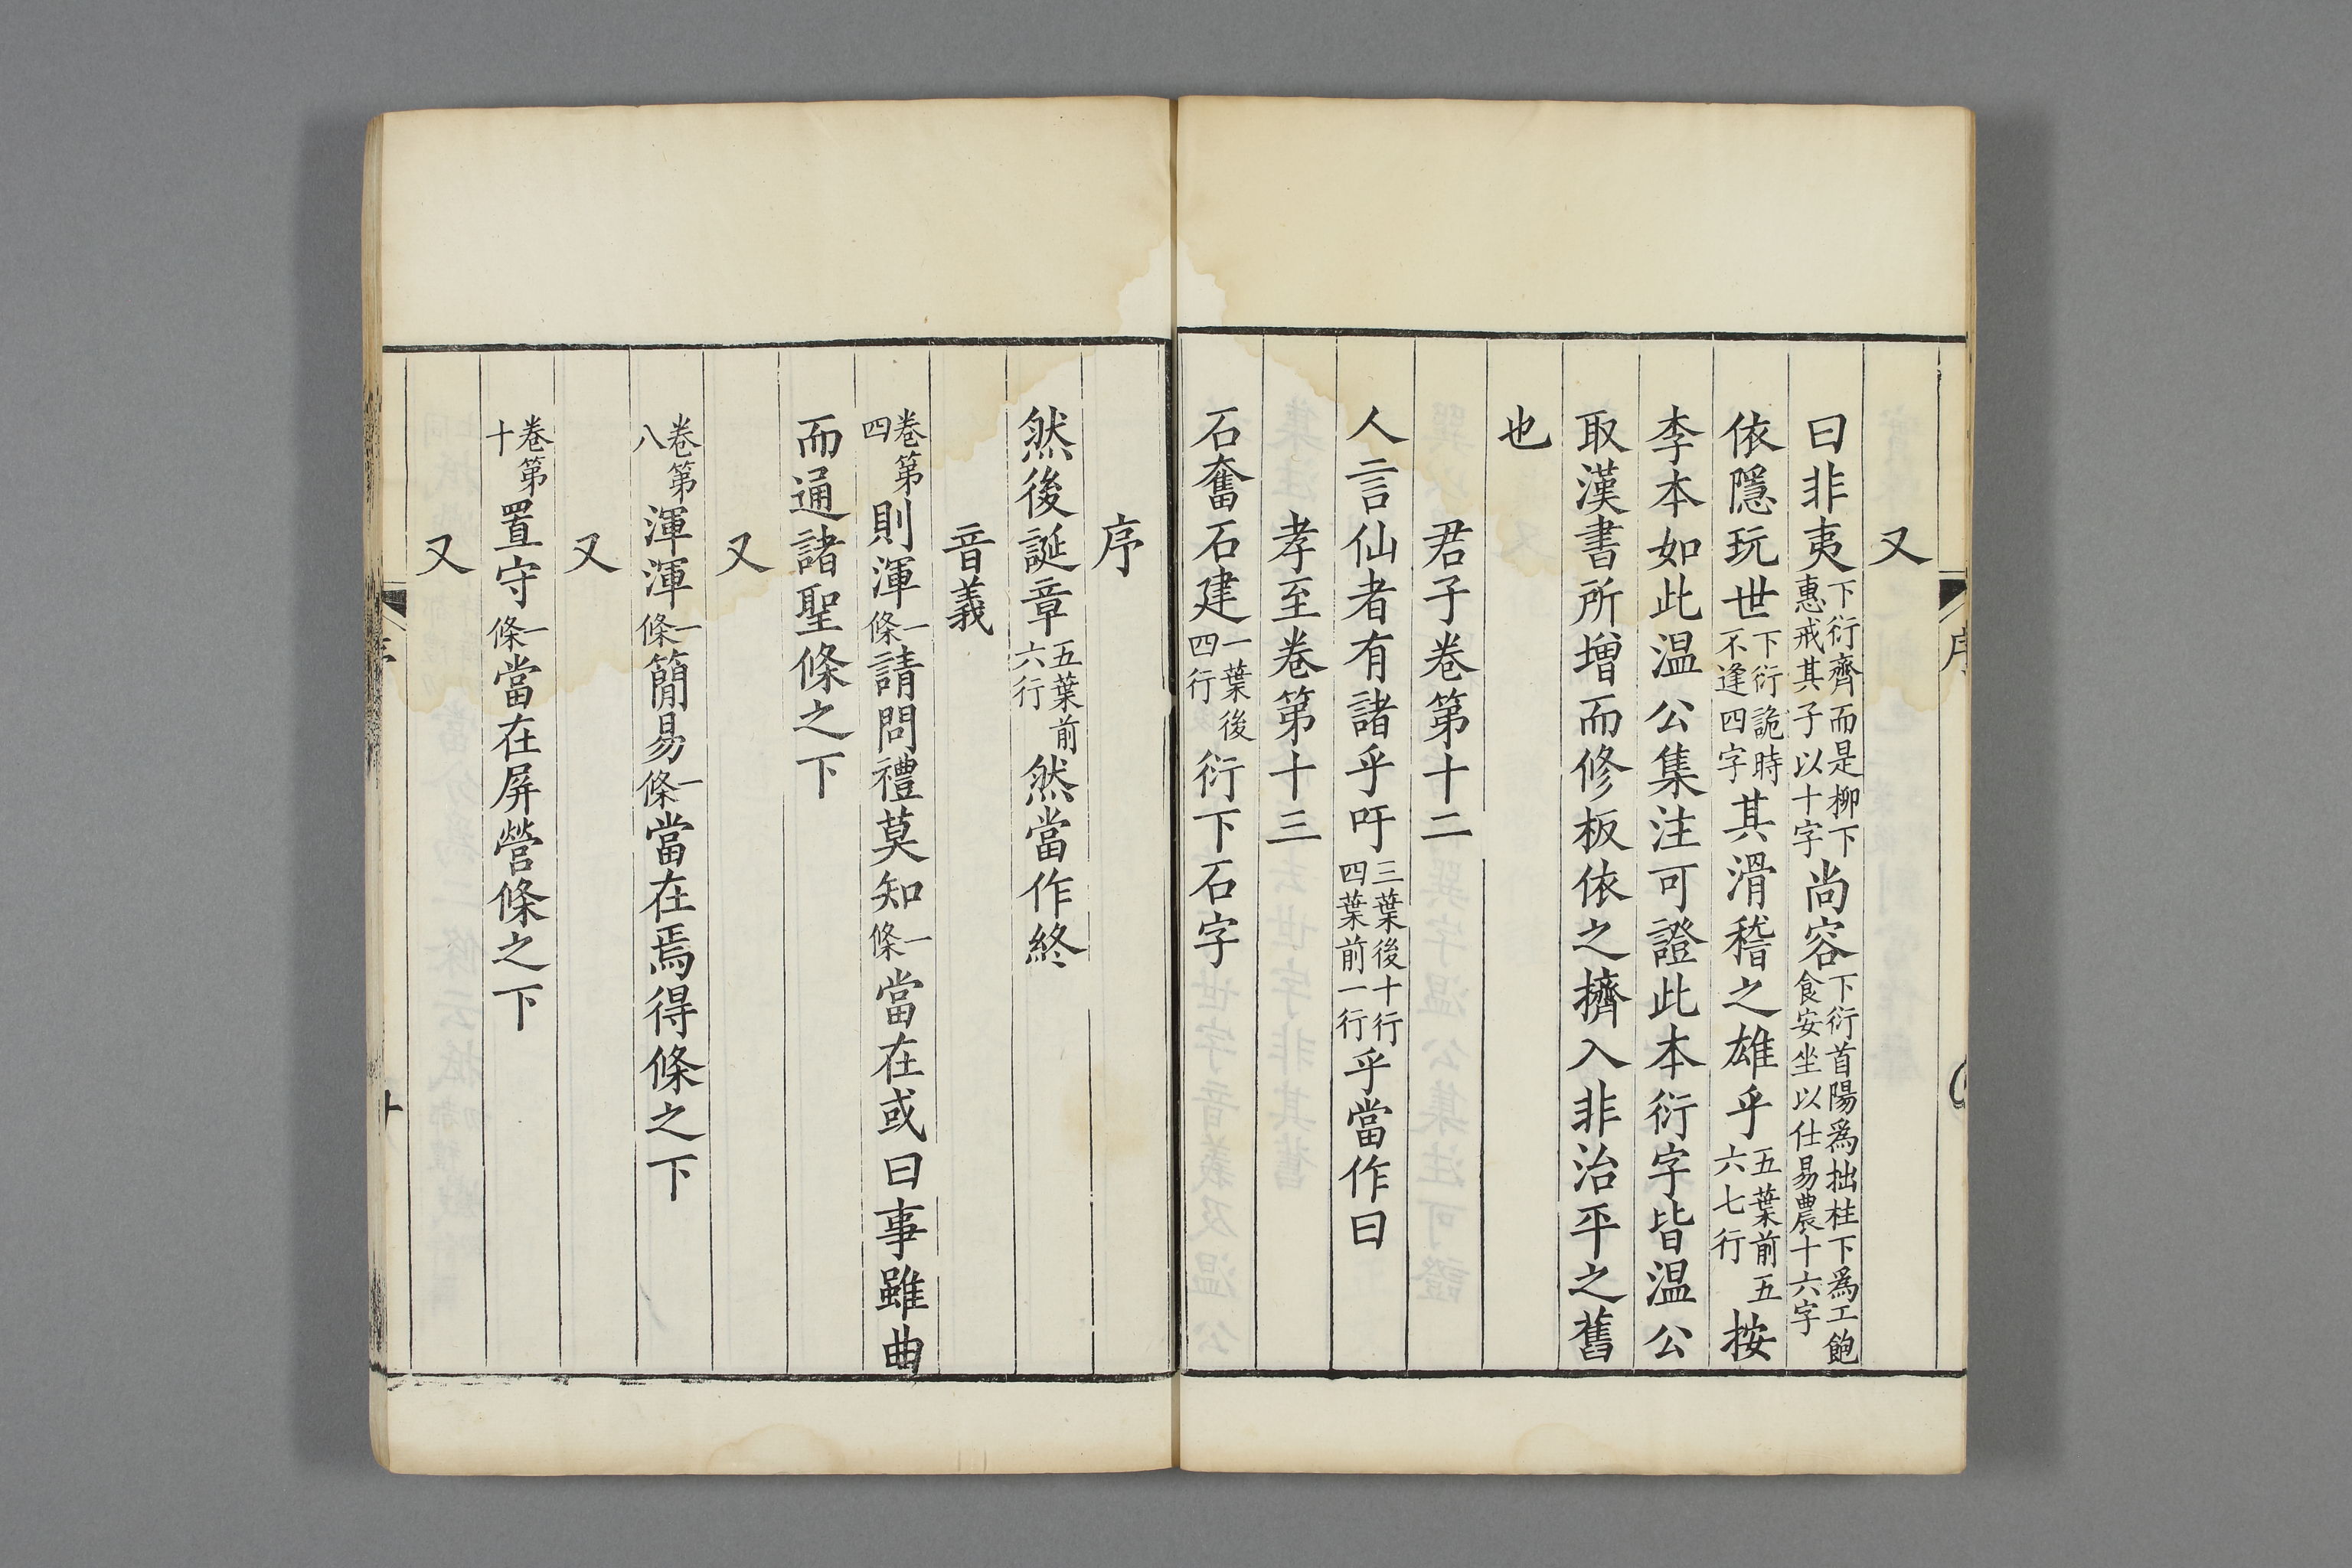 又
曰非夷下衍齊而是柳下惠戒其子以十字尚容下衍首陽爲拙柱下爲工飽食安坐以仕易農十六字
依隱玩世下衍詭時不逢四字其滑稽之雄乎五葉前五六七行按
李本如此温公集注可證此本衍字皆温公
取漢書所增而修板依之擠入非治平之舊
也
君子卷第十二
人言仙者有諸乎吁三葉後十行四葉前一行乎當作曰
孝至卷第十三
石奮石建一葉後四行衍下石字
序
然後誕章五葉前六行然當作終
音義
卷第四則渾一條請問禮莫知一條當在或曰事雖曲
而通諸聖條之下
又
卷第八渾渾一條簡易一條當在焉得條之下
又
卷第十置守一條當在屏營條之下
又